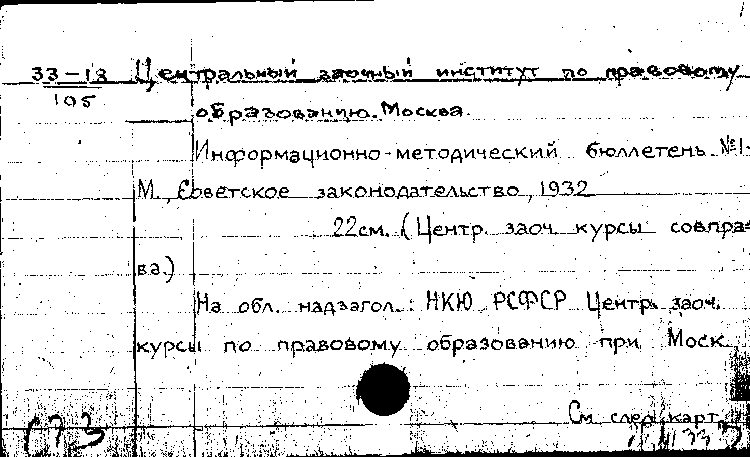 33-13 Центральный заочный институт по правовому
105
образованию. Москва.
Информационно-методический бюллетень №1-
М., Советское законодательство, 1932
22см. (Центр. заоч. курсы совпра-
ва.)
На обл. надзагол.: НКЮ РСФСР Центр. заоч.
курсы по правовому образованию при Моск.
См. след. карт.
173